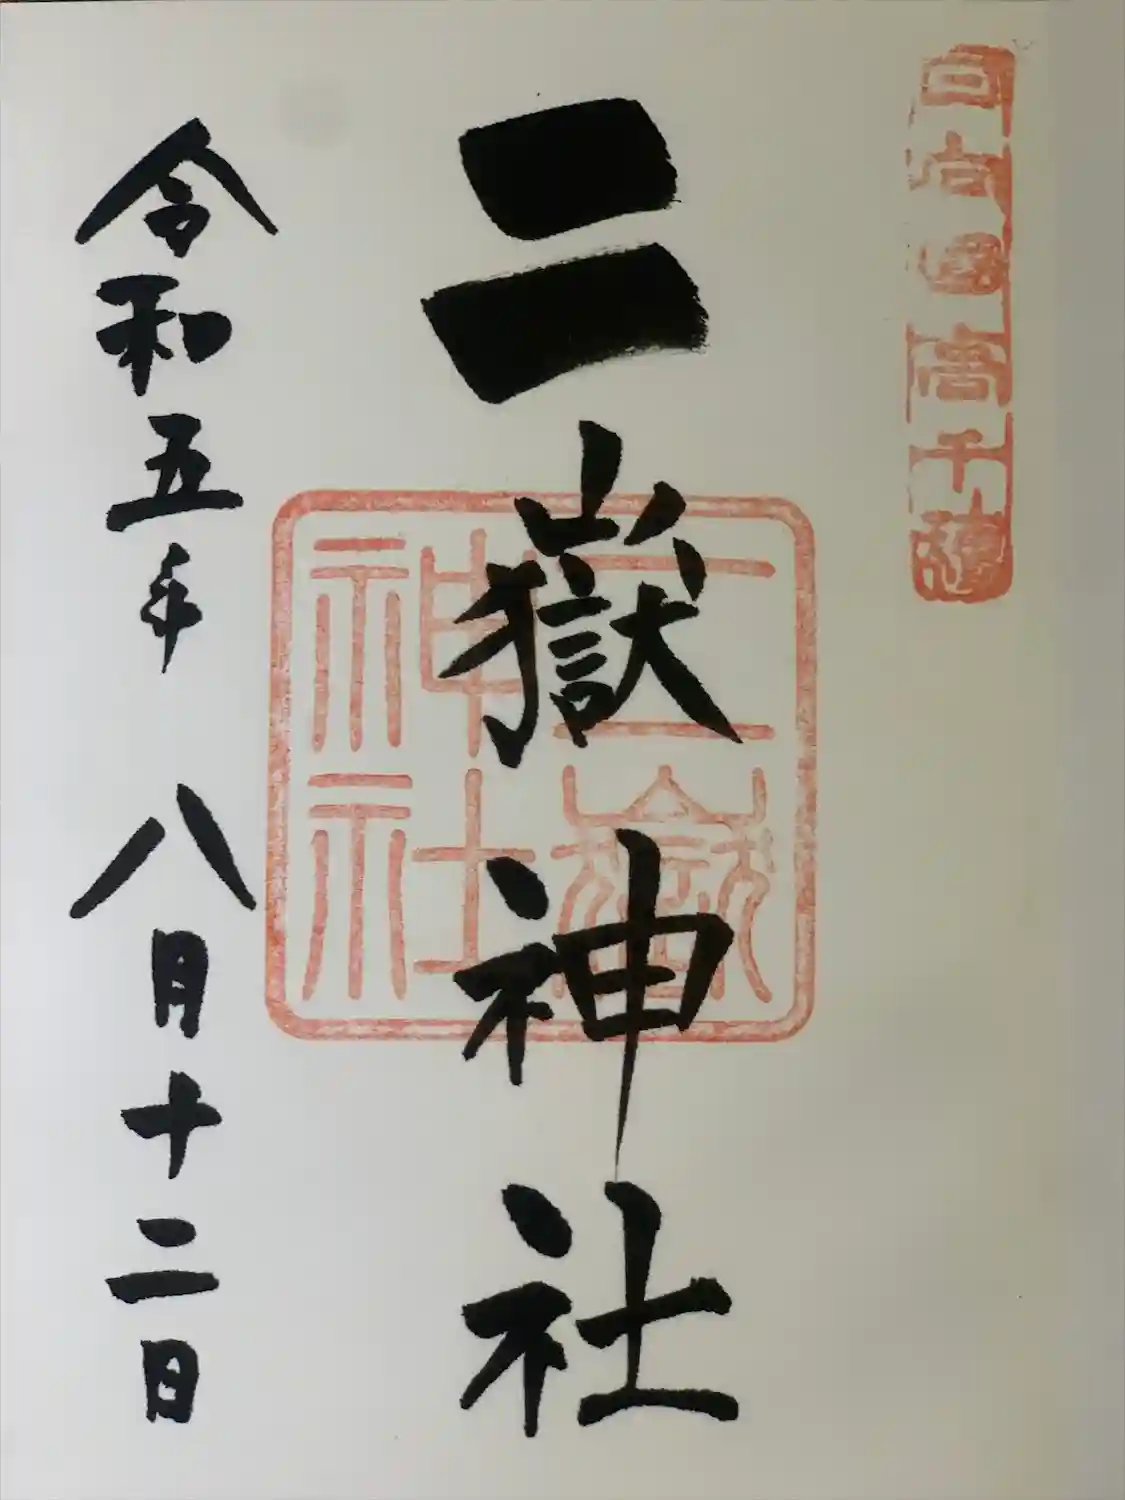 日向国高千穂
二嶽神社
二嶽神社
令和五年 八月十二日